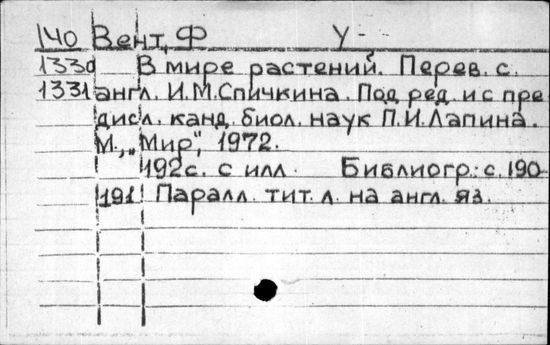 140 Вент, Ф У-
1330 В мире растений. Перев. с.
1331 англ. И.М.Спичкина. Под ред. и с пре
дисл. канд. биол. наук П.И.Лапина.
М., „Мир", 1972.
192с. с илл. Библиогр.: с. 190-
191. Паралл. тит. л. на англ. яз.